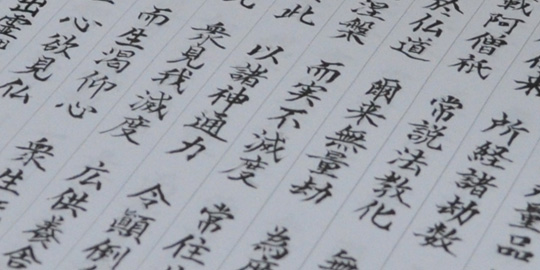 量品
来 所経諸劫数
載阿僧祇 常説法教化 無
於仏道 爾来無量劫 為
涅槃 而実不滅度 常住
此 以諸神通力 令顛倒
衆見我滅度 広供養舎
而生渇仰心 衆生
心欲見仏
出霊